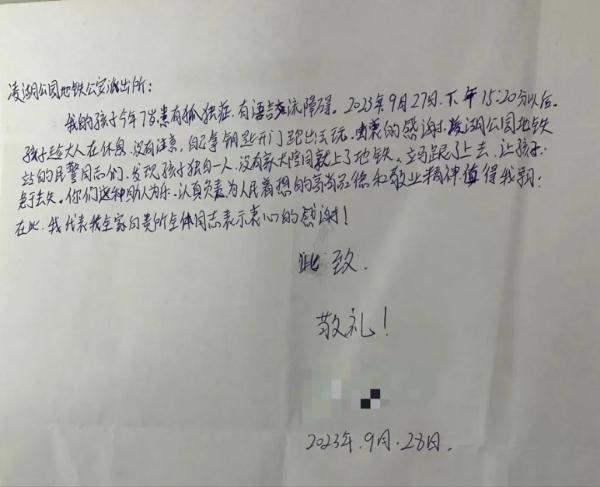 凌湖公园地铁公交派出所:
我的孩子今年7岁患有孤独症,有语言交流障碍。2023年9月27日.下午15:20分以后.
孩子趁大人在休息,没有注意,自己拿钥匙开门跑出去玩.衷衷的感谢.凌湖公园地铁
站的民警同志们、发现孩子独自一人,没有家大陪同就上了地铁、立马跟了上去、让孩子
免于丢失。你们这种助人为乐、认真负责为人民着想的高尚品德和敬业精神.值得我
在此.我代表我全家向贵所全体同志表示衷心的感谢!
此致.
敬礼!
2023年.9月.28日.